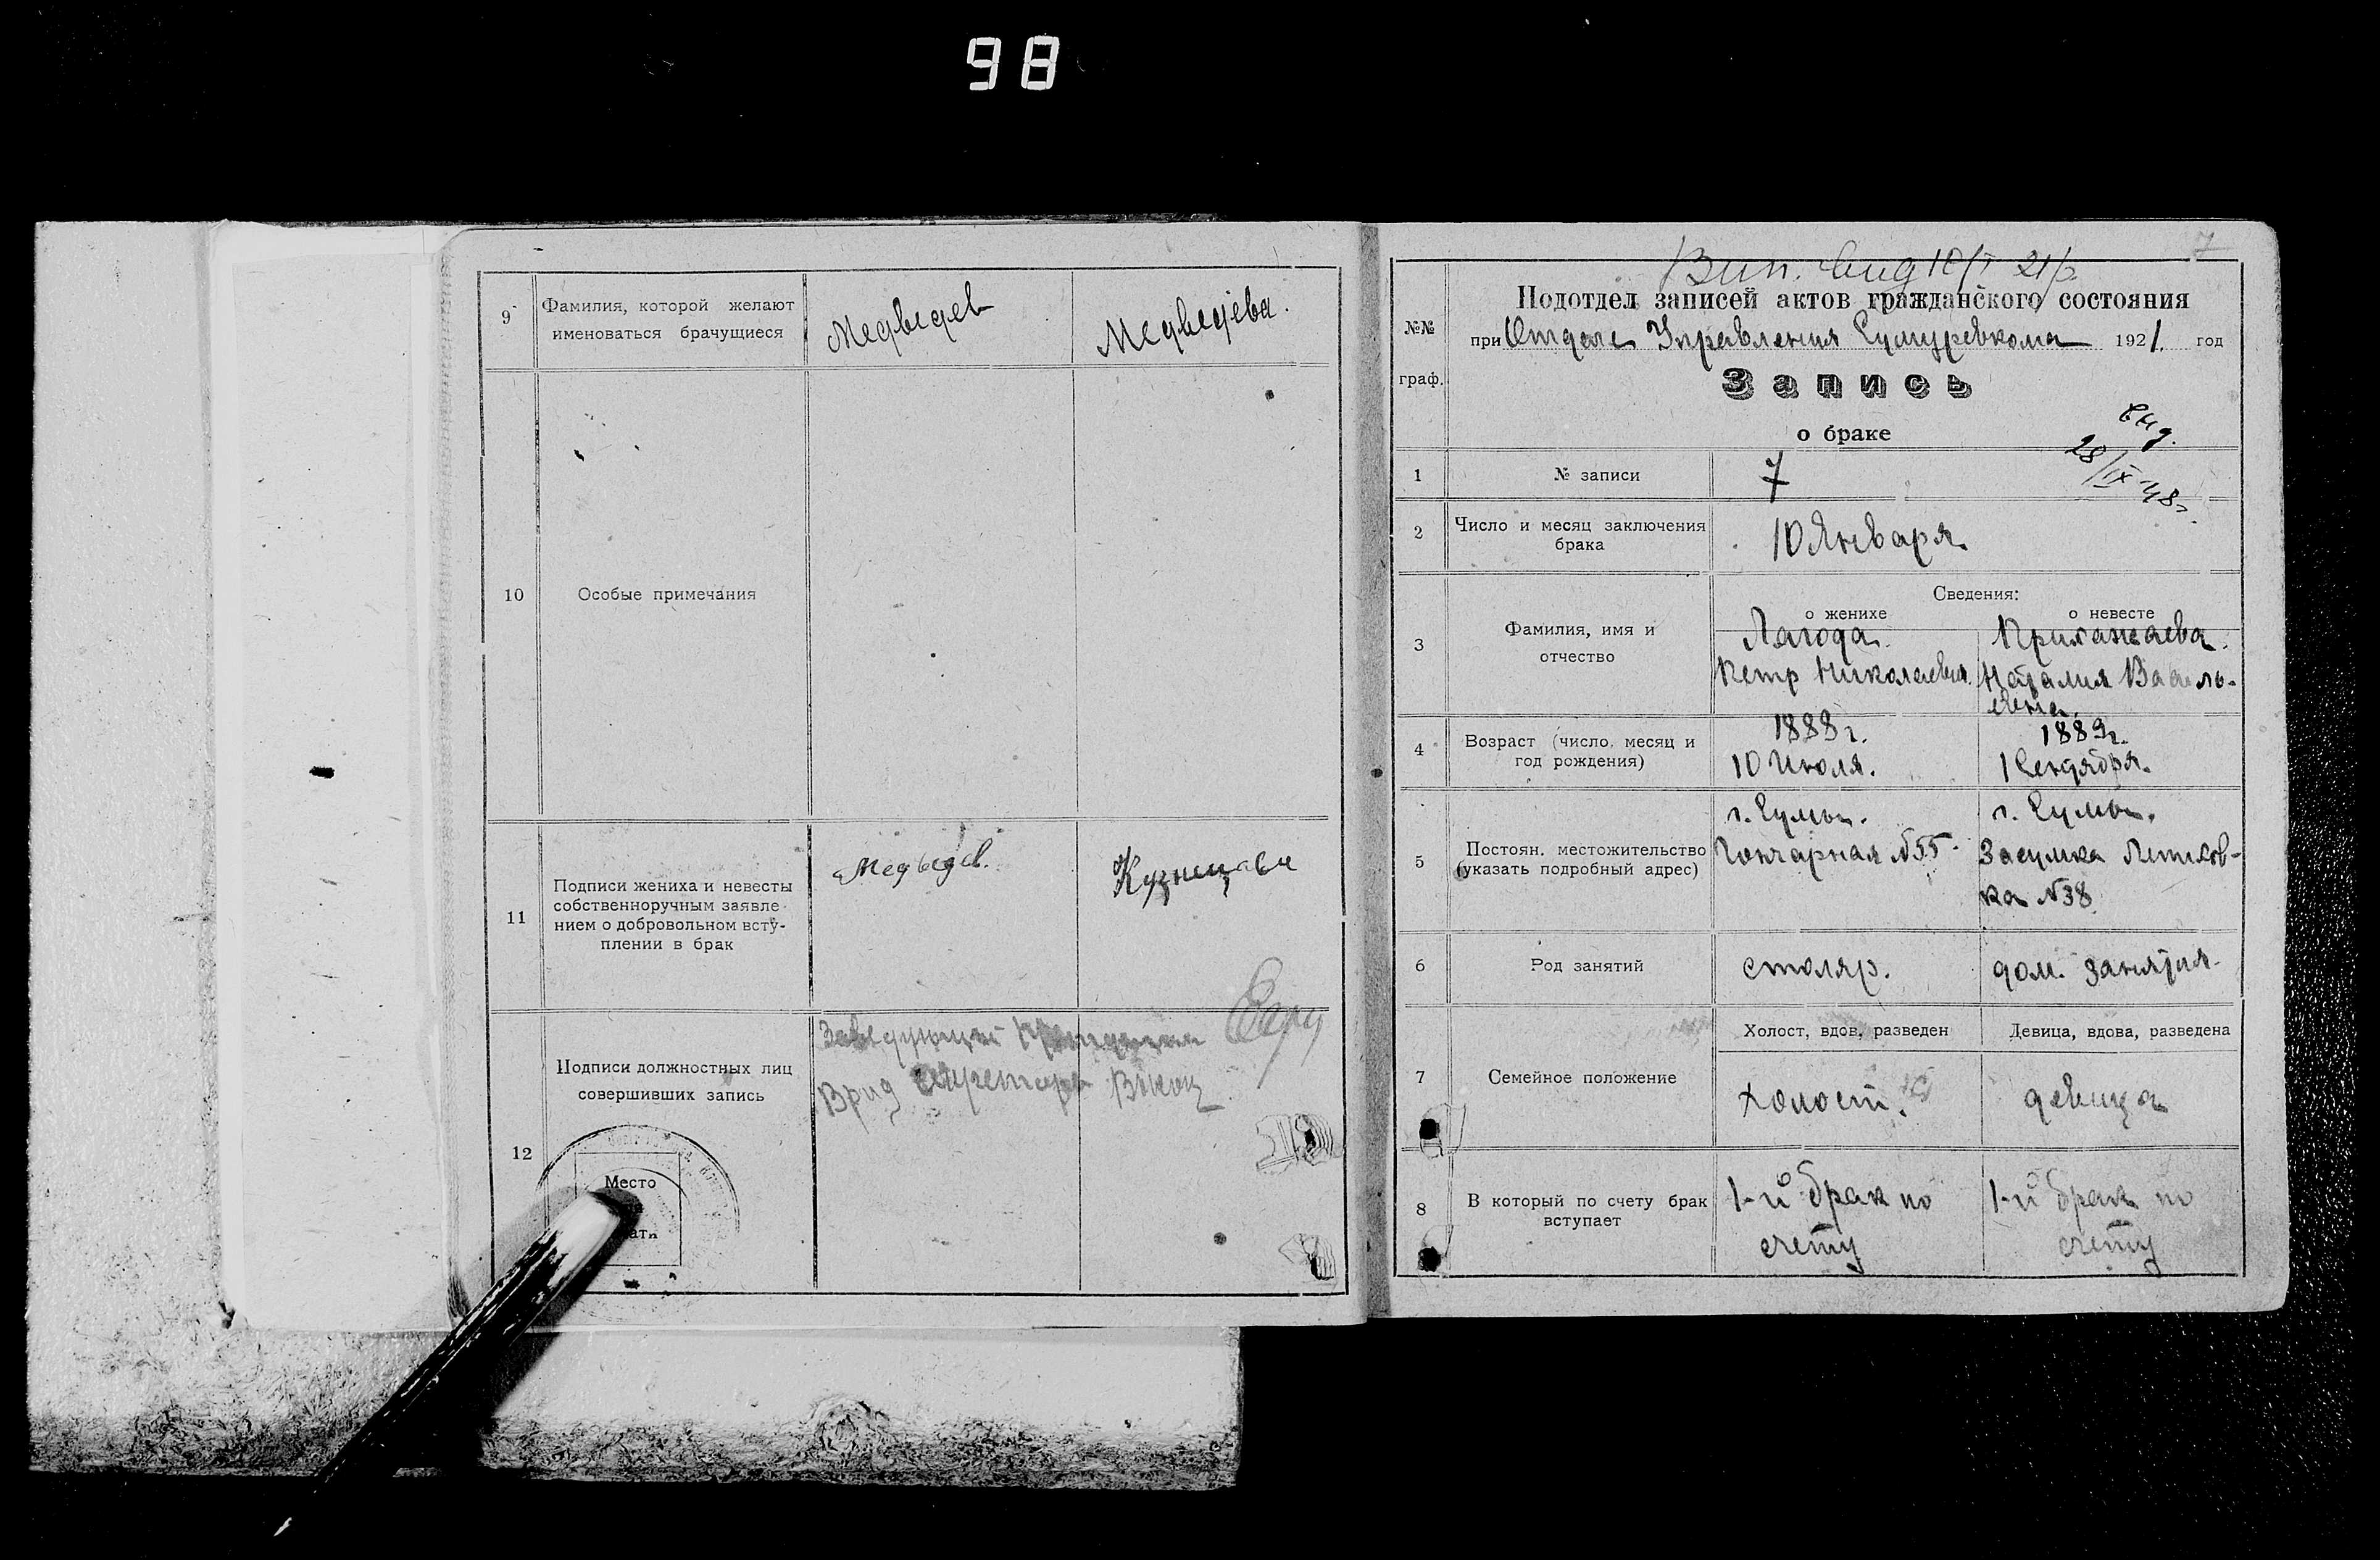 98
9
Фамилия, которой желают
именоваться брачущиеся
Медведев
Медведева.
10
Особые примечания
11
Подписи жениха и невесты
собственноручным заявле-
нием о добровольном всту-
плении в брак
Медведев.
Кузнецова
12
Подписи должностных лиц
совершивших запись
Заведующий
Врид Секретаря
Место
ати
7
Вып. 10/I 21г
№№
граф.
Подотдел записей актов гражданского состояния
при Отделе Управления Сумуревкома 1921 год
Запись
о браке
28/IX-48г.
1
№ записи
7
2
Число и месяц заключения
брака
10 Января
3
Фамилия, имя и
отчество
Сведения:
о женихе
о невесте
Лагода
Петр Николаевич
Наталия Василь-
евна
4
Возраст (число, месяц и
год рождения)
1888г.
10 Июля.
1889г.
1 Сентября.
5
Постоян. местожительство
(указать подробный адрес)
г. Сумы.
Гончарная №55
г. Сумы.
Засумка
ка №38
6
Род занятий
столяр.
дом. занятия
7
Семейное положение
Холост, вдов, разведен
Девица, вдова, разведена
холост.
девица
8
В который по счету брак
вступает
1-й брак по
счету
1-й брак по
счету